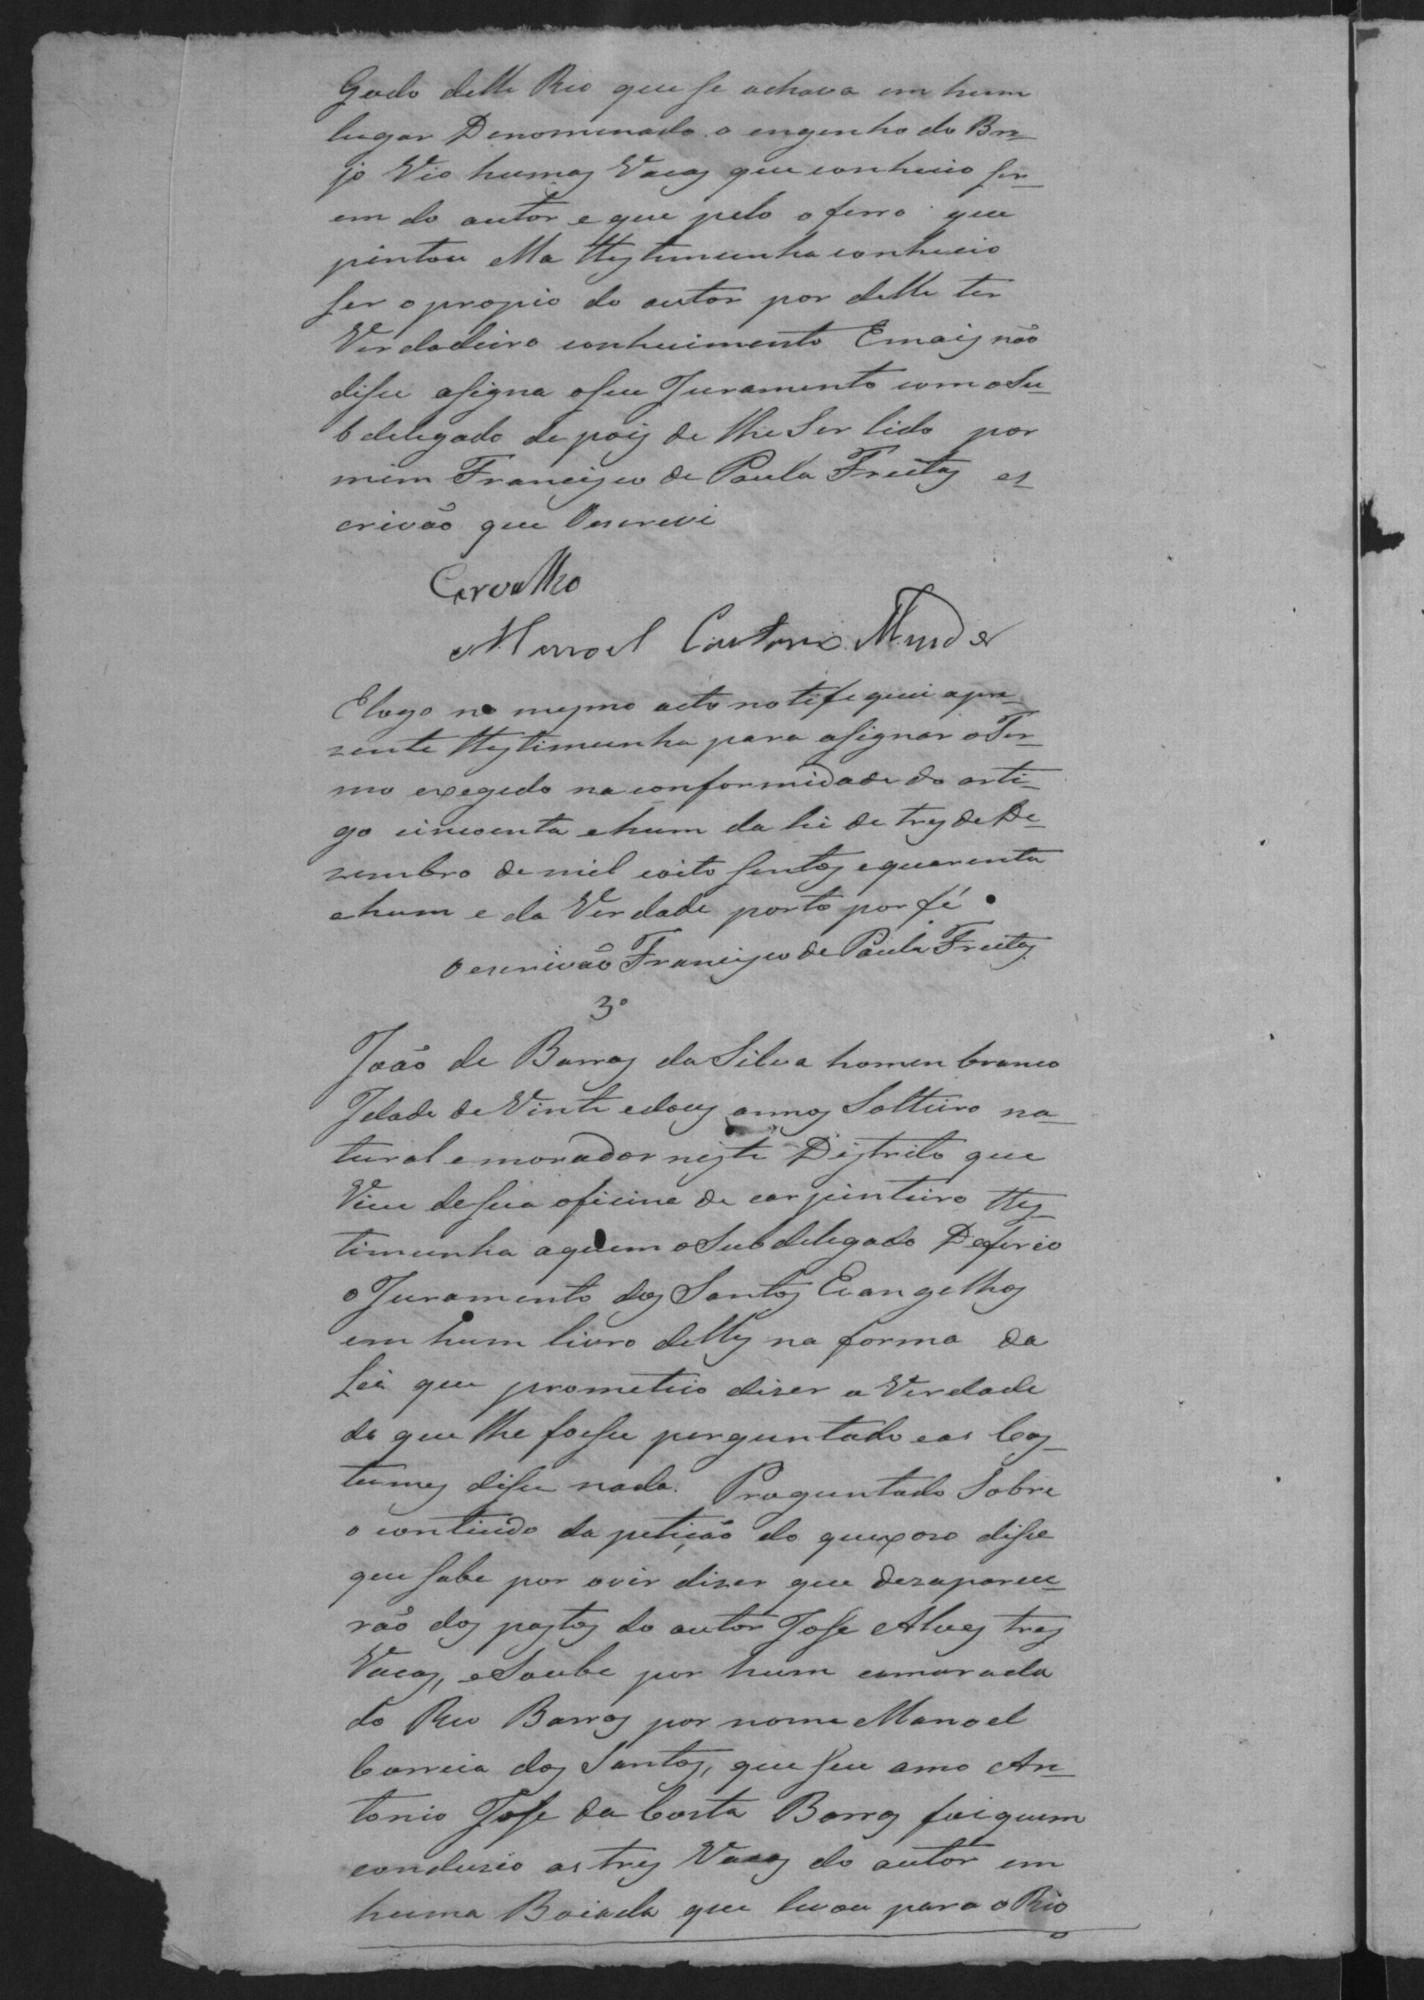 Gado delle Reo que se achava em hum
lugar Denominado o engenho do Bre-
jo Vio humas Vacas que conhecio ser-
em do autor e que pelo o ferro que
pintou ella testimunha conhecio
ser o propio do autor por delle ter
Verdadeiro conhecimento E mais não
disse asigna o seu Juramento com o Su-
b delegado de pois de lhe Ser lido por
mim Francisco de Paula Freitas es-
crivão que Oescrevi
Carvalho
Manoel Mendes
E logo no mesmo acto notifequei apre-
zente testimunha para asignar o Ter-
mo exegedo na conformidade do arti-
go cincoenta e hum da lei de tres de De-
zembro de mil oito sentos e quarenta
e hum e da Verdade porto por fé.
O escrivão Francisco de Paula Freitas
3º
João de Barros da Silva homen branco
Idade de Vinte e dous annos Solteiro na-
tural e morador neste Destrito que
Vive de sua oficina de carpinteiro tes-
timunha a quem o Subdelegado Deferio
o Juramento dos Santos Evangelhos
em hum livro delles na forma da
Lei que prometeio dizer a Verdade
do que lhe fosse perguntado e aos Cos-
tumes disse nada. Proguntado Sobre
o contiudo da petição do queixoso disse
que sabe por ovir dizer que dezaparece-
rão dos pastos do autor Jose Alves tres
Vacas, e Soube por hum camarada
do Reo Barros por nome Manoel
Correia dos Santos, que seu amo An-
tonio Jose da Costa Barros foi quem
conduzio as tres Vacas do autor em
huma Boiada que levou para o Rio